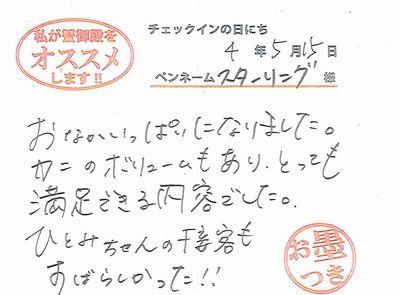 私が蟹御殿を
オススメ
します!!
チェックインの日にち
4年5月15日
ペンネーム スターリング 様
おなかいっぱいになりました。
カニのボリュームもあり、とっても
満足できる内容でした。
ひとみちゃんの接客も
すばらしかった!!
お墨
つき